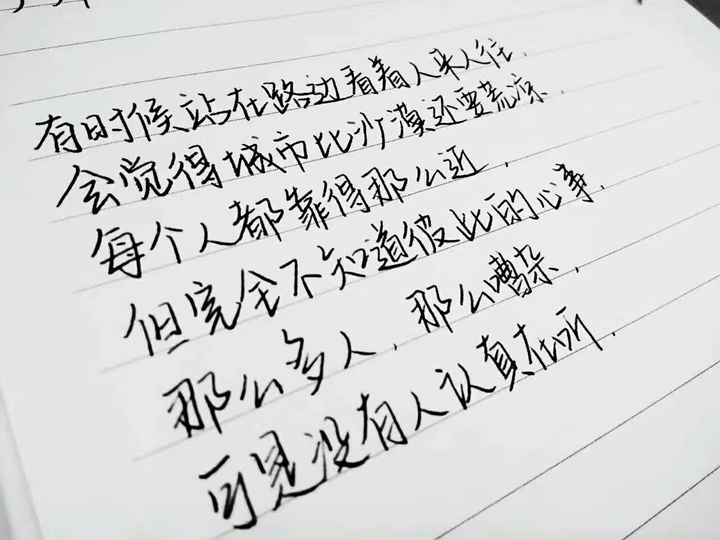 有时候站在路边看着人来人往.
会觉得城市比沙漠还要荒凉.
每个人都靠得那么近,
但完全不知道彼此的心事.
那么多人,那么嘈杂,
可是没有人认真在听.